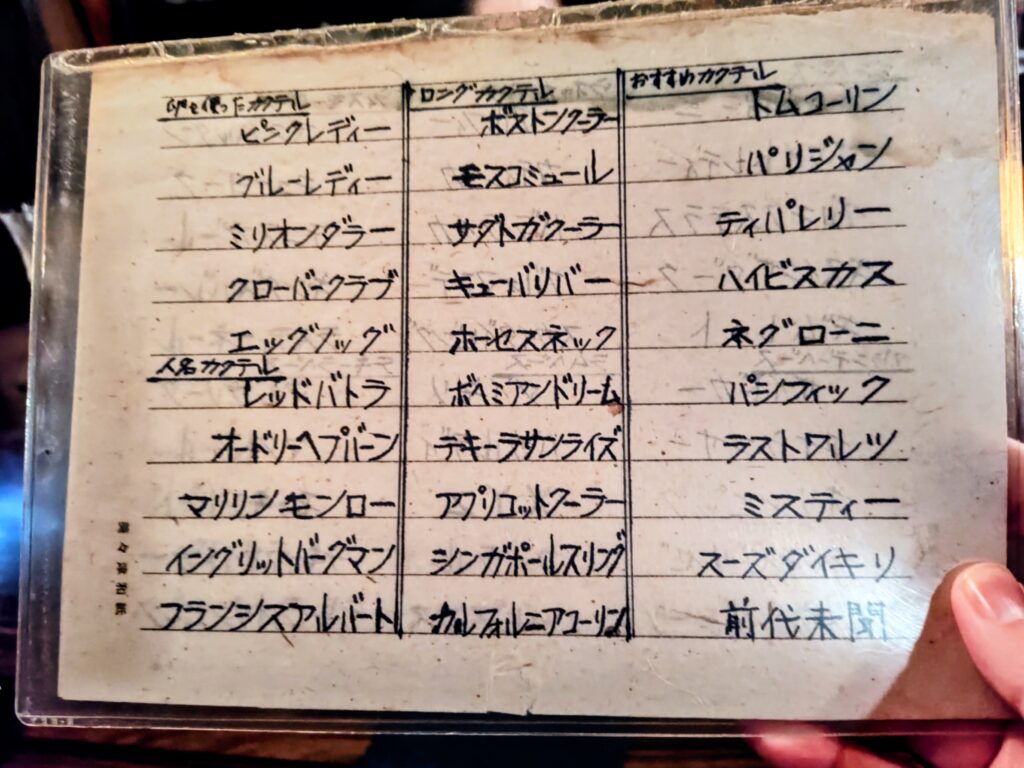 卵を使ったカクテル
ピンクレディー
ブルーレディー
ミリオンダラー
クローバークラブ
エッグノッグ
人名カクテル
レッドバトラ
オードリーヘプバーン
マリリンモンロー
イングリットバーグマン
フランシスアルバート
ロングカクテル
ボストンクーラー
モスコミュール
サダトガクーラー
キューバリバー
ホーセスネック
ボヘミアンドリーム
テキーラサンライズ
アプリコットクーラー
シンガポールスリング
カルフォルニアコーリン
おすすめカクテル
トムコーリン
パリジャン
ティパレリー
ハイビスカス
ネグローニ
パシフィック
ラストワルツ
ミスティー
スーズダイキリ
前代未聞